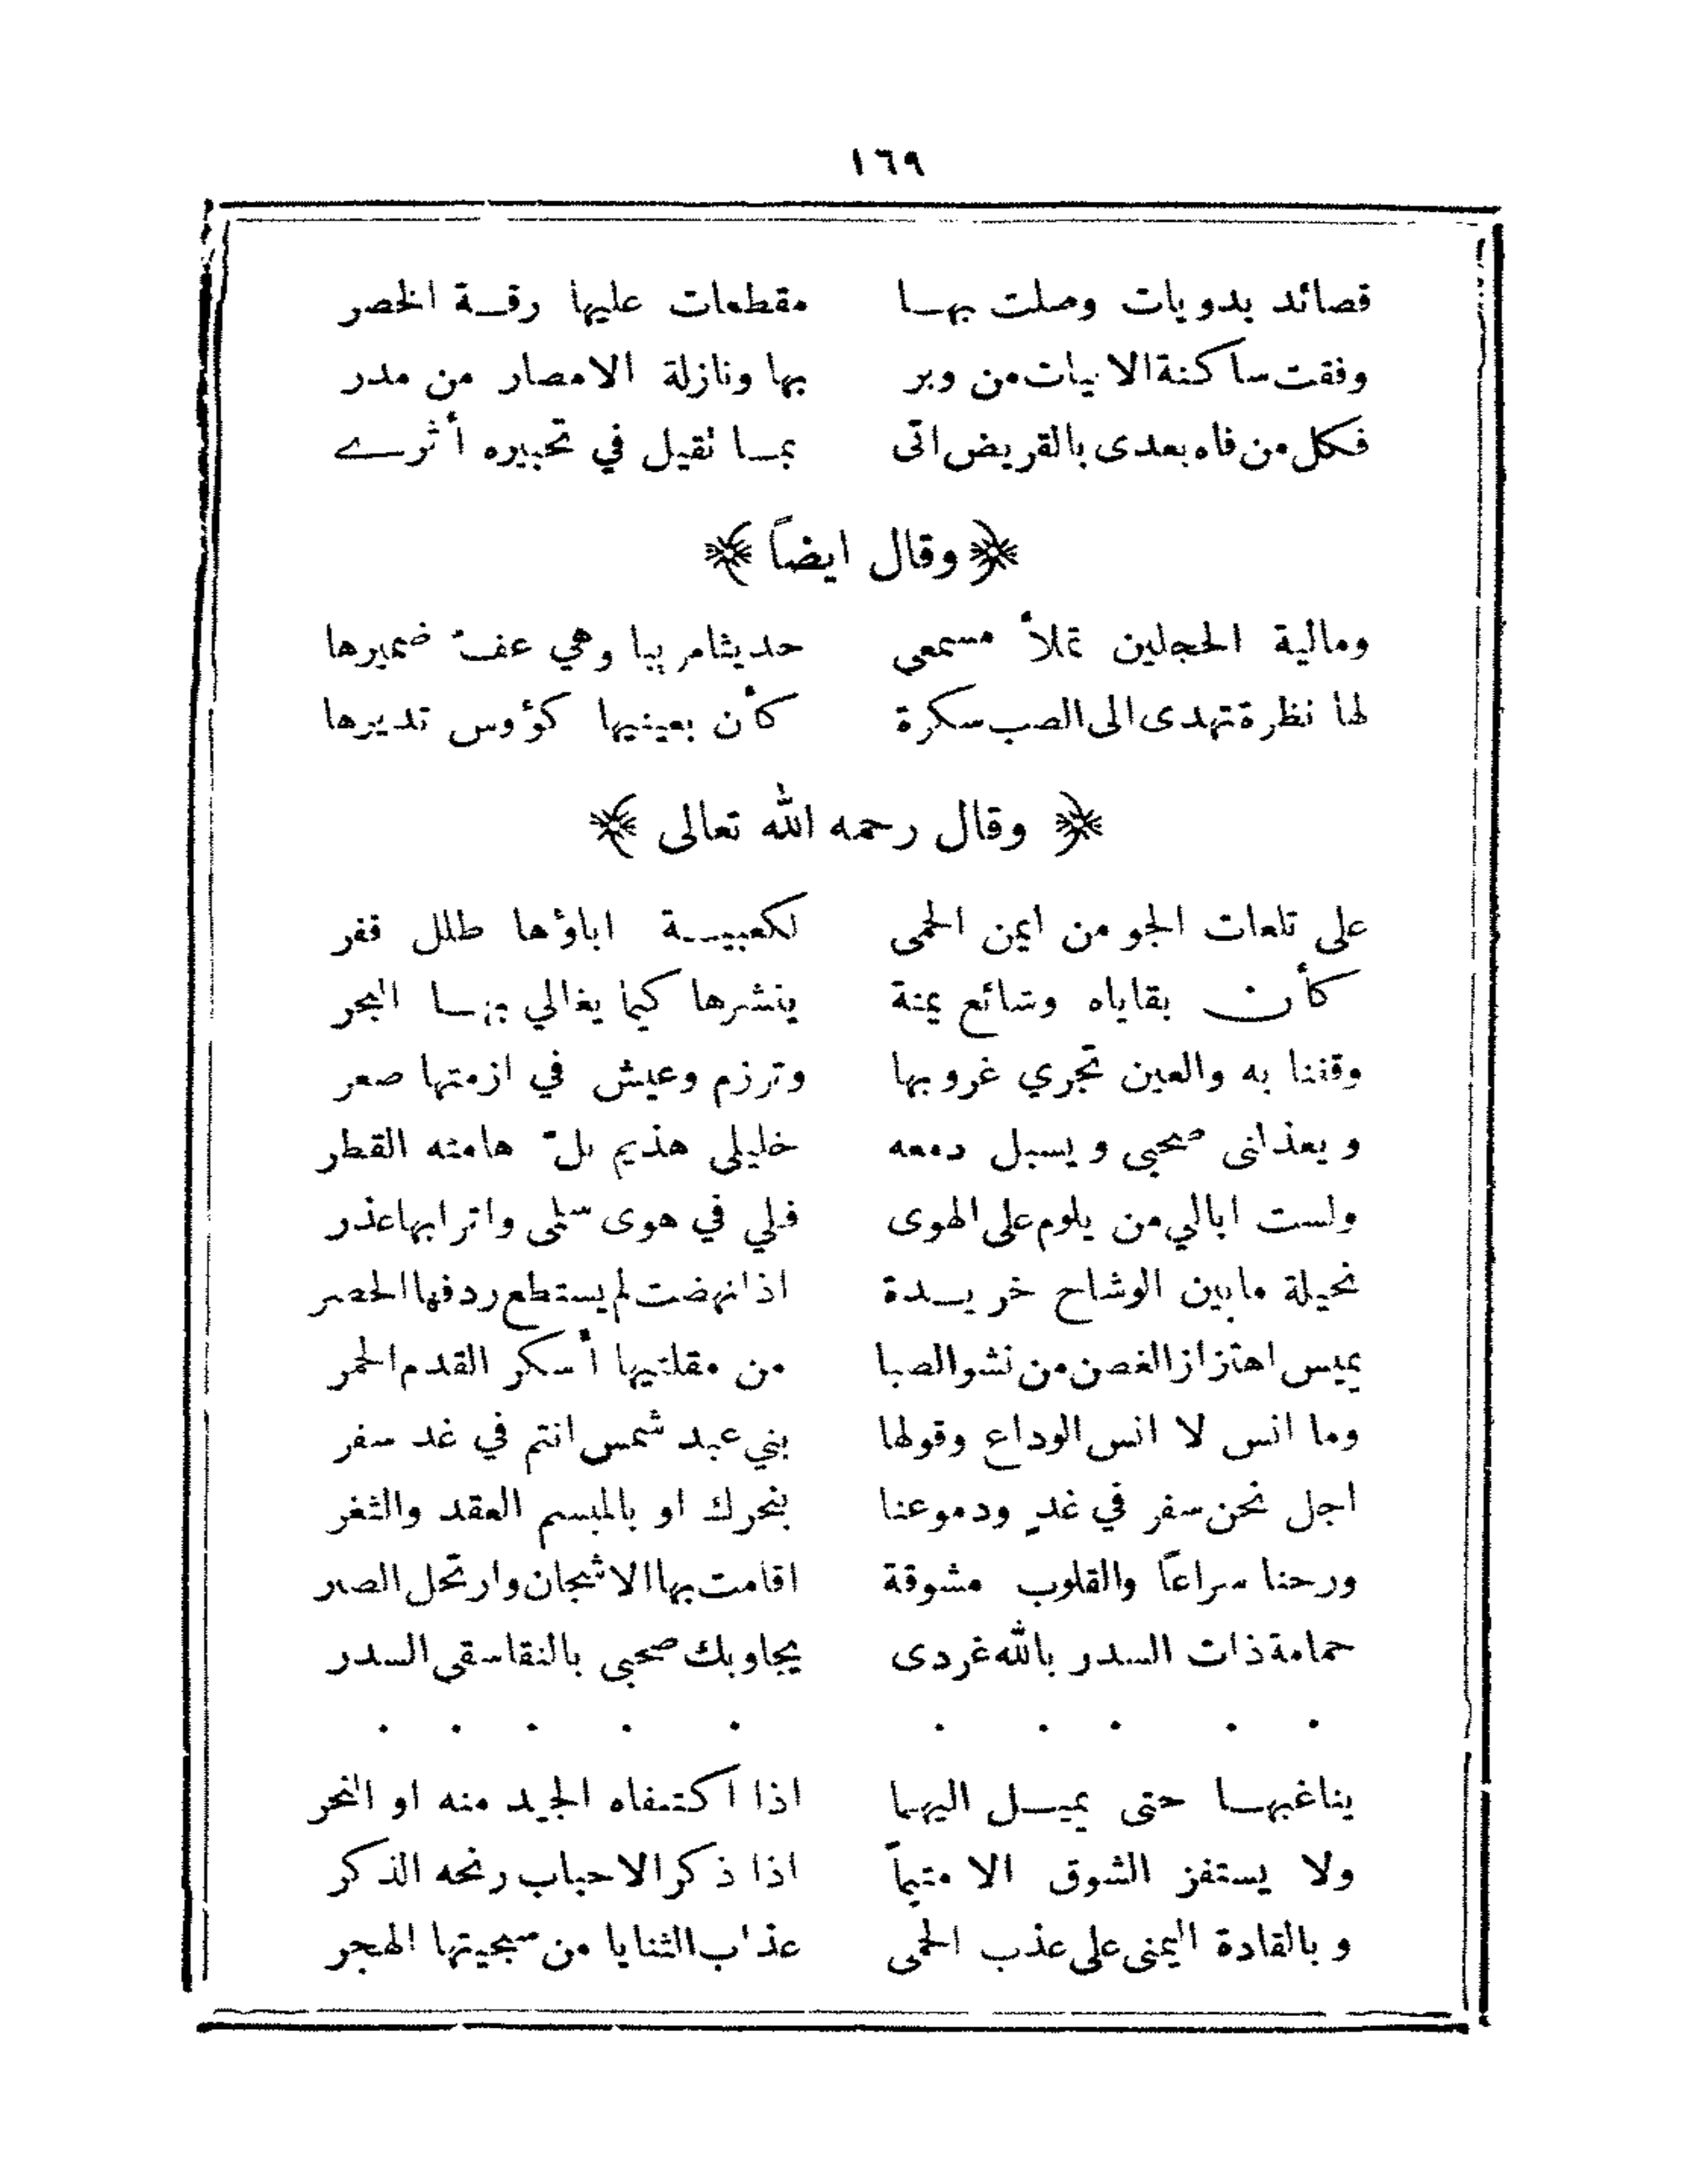 ١٦٩
قصائد بدويات وصلت بها مقطعات عليها رقة الخصر
وفقت ساكنة الابيات من وبر بها ونازلة الامصار من مدر
فكل من فاه بعدى بالقريض اتى بما تقيل في تحبيره أثرے
﴿ وقال ايضاً ﴾
ومالية الحجلين تملأ مسمعي حديثا مريبا وهي عفّ ضميرها
لها نظرة تهدى الى الصب سكرة كأن بعينيها كؤوس تديرها
﴿ وقال رحمه الله تعالى ﴾
على تلعات الجو من ايمن الحمى لكعبية اباؤها طلل قفر
كأن بقاياه وشائع يمنة ينشرها كيما يغالي بها التجر
وقفنا به والعين تجري غروبها وترزم وعيش في ازمتها صعر
ويعذلنى صحبى ويسبل دمعه خليلى هذيم بلّ هامته القطر
ولست ابالي من يلوم على الهوى فلي في هوى سلمى واترابها عذر
نحيلة مابين الوشاح خريدة اذا نهضت لم يستطع ردفها الخصر
يميس اهتزاز الغصن من نشو الصبا من مقلتيها أسكر القدم الخمر
وما انس لا انس الوداع وقولها بني عبد شمس انتم في غد سفر
اجل نحن سفر في غدٍ ودموعنا بنحرك او بالمبسم العقد والثغر
ورحنا سراعاً والقلوب مشوقة اقامت بها الاشجان وارتحل الصبر
حمامة ذات السدر بالله غردى يجاوبك صحبى بالنقا سقى السدر
. . . . . . . . . .
يناغيها حتى يميل اليهما اذا اكتنفاه الجيد منه او النحر
ولا يستفز الشوق الا متيماً اذا ذكر الاحباب رنحه الذكر
وبالقادة اليمنى على عذب الحمى عذاب الثنايا من سجيتها الهجر